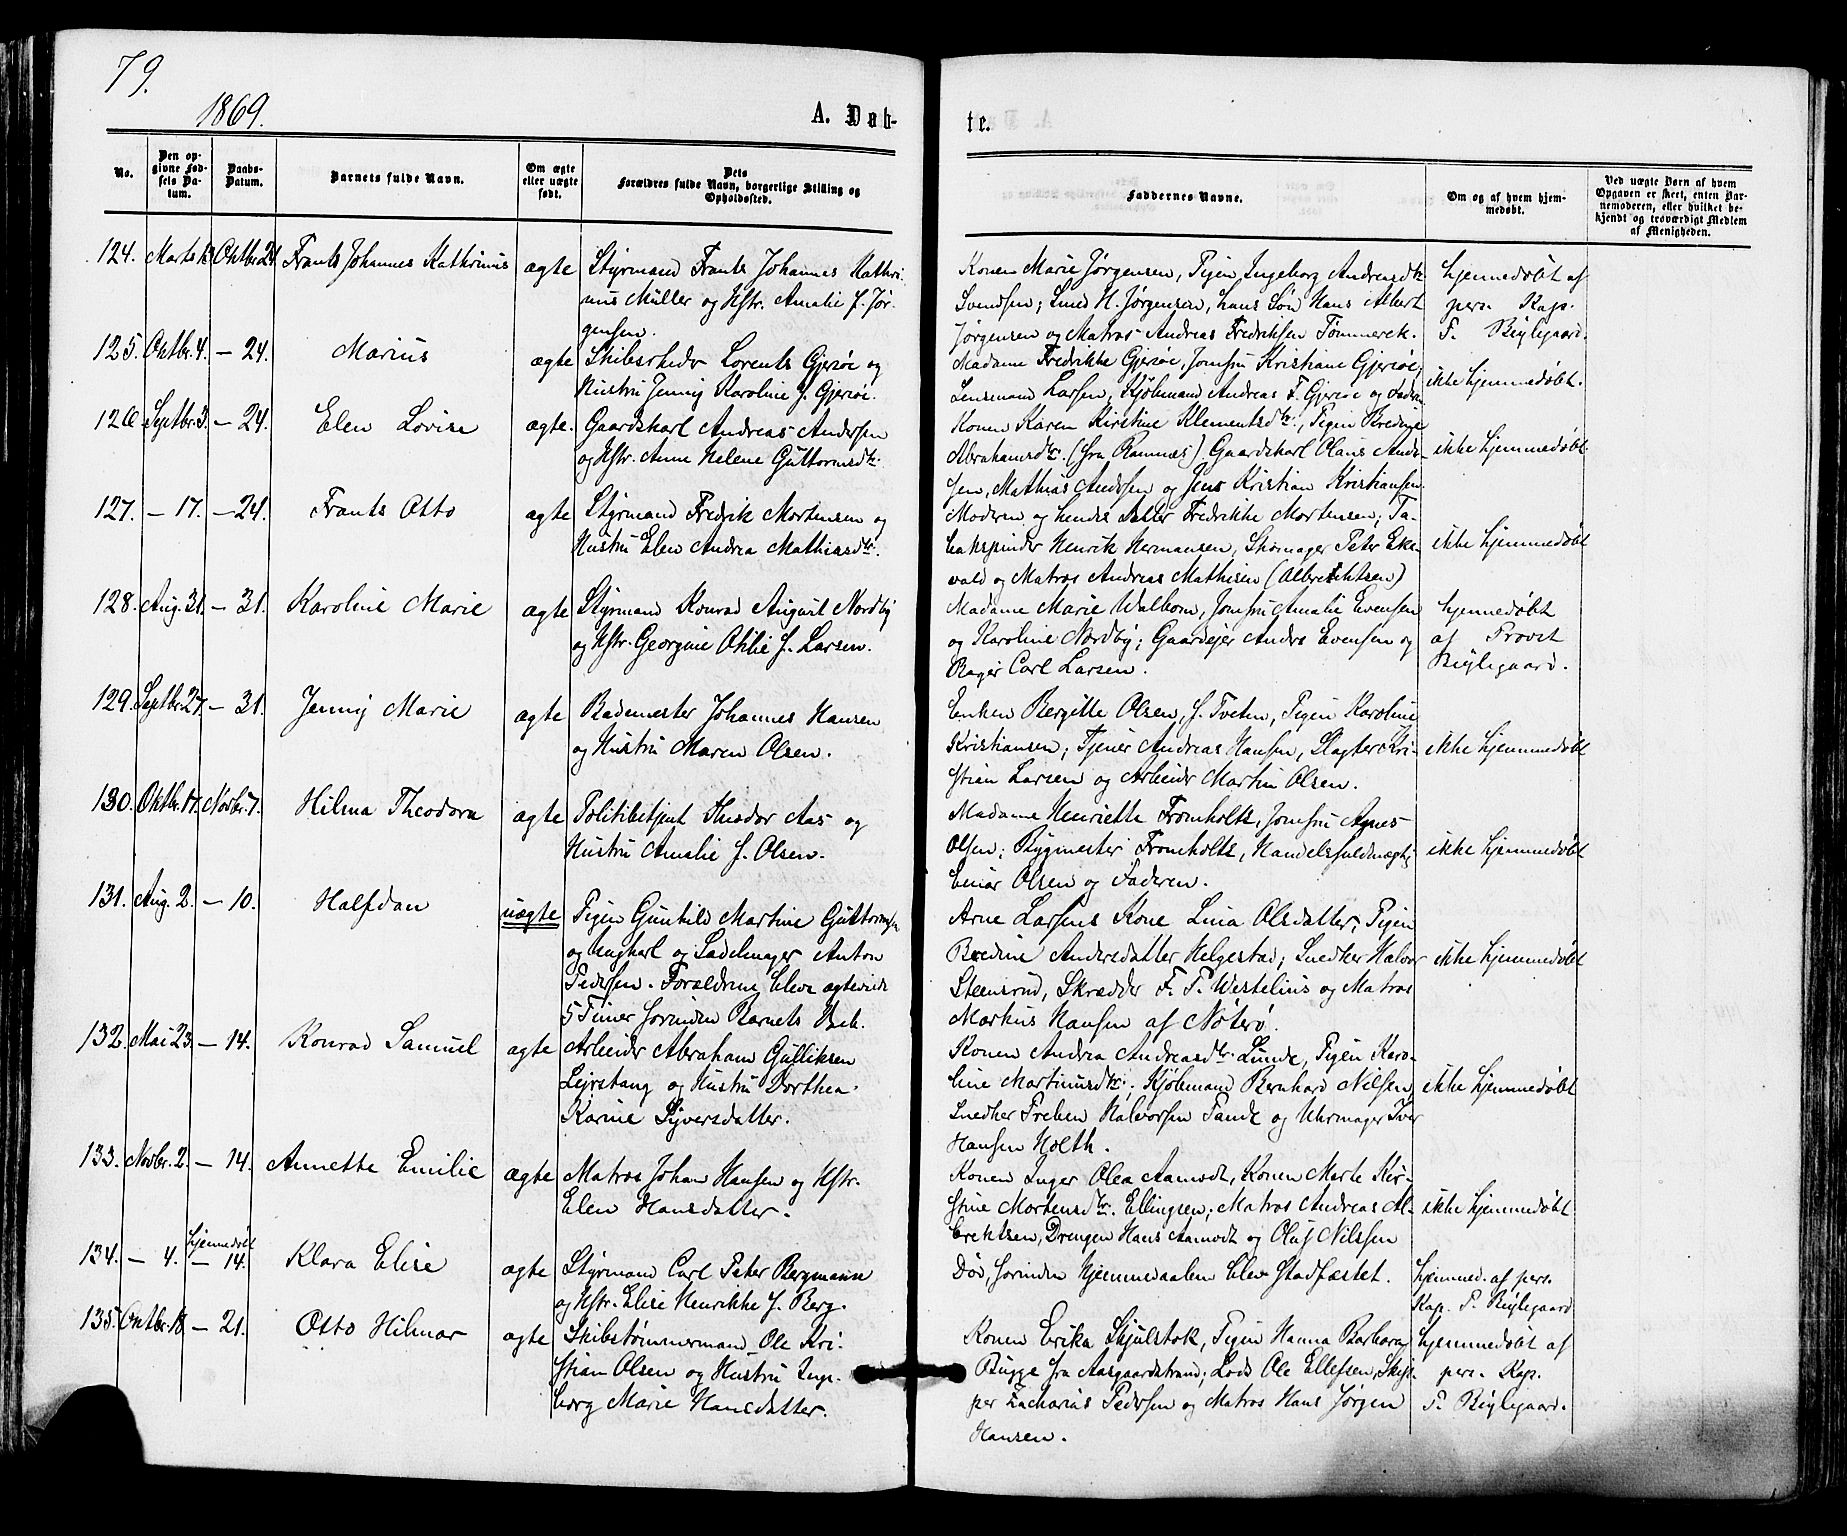 79.
1869.
A. Døb-
te.
No.
Den op-
givne Fød-
sels Da-
tum.
Daabs-
Datum.
Barnets fulde Navn.
Om ægte
eller uægte
født.
Dets
Forældres fulde Navn, borgerlige Stilling og
Opholdssted.
Faddernes Navne.
Om og af hvem hjem-
medøbt.
Ved uægte Børn af hvem
Opgaven er skeet, enten Bar-
nemoderen, eller hvilket be-
kjendt og troværdigt Medlem
af Menigheden.
124. Marts Oktbr. 24 Frants Johannes Kathrinus ægte
Styrmand Frants Johannes Kathri-
nus Müller og Hstr. Amalie f. Jør-
gensen.
Konen Marie Jørgensen, Pigen Ingeborg Andreasdtr.
Svendsen; Smed H. Jørgensen, hans Søn Hans Albert
Jørgensen og Matros Andreas Fredriksen Tømmerek.
hjemmedøbt af
pers. Kap.
P. Bøylegaard.
125. Oktbr. 4. — 24. Marius ægte
Skibsrheder Lorents Gjerøe og
Hustru Jenny Karoline f. Gjerøe.
Madame Fredrikke Gjerøe, Jomfru Kristiane Gjerøe,
Lensmand Larsen, Kjøbmand Andreas F. Gjerøe og Faderen
ikke hjemmedøbt.
126. Septbr. 3. — 24. Elen Lovise ægte.
Gaardskarl Andreas Andersen
og Hstr. Anne Helene Guttormsdtr.
Konen Karen Kirstine Klementsdtr., Pigen Bredine
Abrahamsdtr. (fra Ramnæs) Gaardskarl Olaus Ander-
sen, Mathias Andersen og Jens Kristian Kristiansen.
ikke hjemmedøbt
127. — 17. — 24. Frants Otto ægte
Styrmand Fredrik Mortensen og
Hustru Elen Andrea Mathiasdtr.
Moderen og hendes Datter Fredrikke Mortensen; To-
bakspinder Henrik Hermansen, Skomager Peter Eke-
vald og Matros Andreas Mathisen (Albrechtsen)
ikke hjemmedøbt
128. Aug. 31. — 31. Karoline Marie ægte
Styrmand Konrad August Nordby
og Hstr. Georgine Otilie f. Larsen.
Madame Marie Walbom, Jomfru Amalie Evensen
og Karoline Nordby; Gaardejer Anders Evensen og
Bager Carl Larsen.
hjemmedøbt
af Provst
Bøylegaard.
129. Septbr. 27. — 31. Jenny Marie ægte
Bademester Johannes Hansen
og Hustru Maren Olsen.
Enken Bergitte Olsen, f. Tveten, Pigen Karoline
Kristiansen; Tjener Andreas Hansen, Slagter Kri-
stian Larsen og Arbeider Martin Olsen.
ikke hjemmedøbt
130. Oktbr. 17. Novbr. 7. Hilma Theodora ægte
Politibetjent Theodor Aas og
Hustru Amalie f. Olsen.
Madame Henriette Fromholtz, Jomfru Agnes
Olsen; Bygmester Fromholtz, Handelsfuldmægtig
Einar Olsen og Faderen.
ikke hjemmedøbt
131. Aug. 2. — 10. Halfdan uægte
Pigen Gunhild Martine Guttormsen
og Ungkarl og Sadelmager Anton
Pedersen. Forældrene bleve ægteviede
5 Timer forinden Barnets Daab.
Arne Larsens Kone Lina Olsdatter; Pigen
Bredine Andersdatter Helgestad; Snedker Halvor
Steensrud, Skrædder F. P. Westelius og Matros
Markus Hansen af Nøterø.
ikke hjemmedøbt
132. Mai 23. — 14. Konrad Samuel ægte
Arbeider Abraham Gulliksen
Lejrstang og Hustru Dorthea
Karine Syversdatter.
Konen Andrea Andreasdtr. Lunde, Pigen Karo-
line Martinusdtr.; Kjøbmand Bernhard Nilsen,
Snedker Preben Halvorsen Tande og Uhrmager Iver
Hansen Holth.
ikke hjemmedøbt
133. Novbr. 2. — 14. Annette Emilie ægte
Matros Johan Hansen og Hstr.
Elen Hansdatter.
Konen Inger Olea Aamodt, Konen Marte Kir-
stine Mortensdtr. Ellingsen; Matros Andreas Al-
brektsen, Drengen Hans Aamodt og Oluf Nilssen
ikke hjemmedøbt
134. — 4. hjemmedøbt — 14. Klara Elise ægte
Styrmand Carl Peter Bergmann
og Hstr. Elise Henrikke f. Berg.
Død, forinden Hjemmedaaben blev Stadfæstet.
hjemmed. af pers.
Kap. P. Bøylegaard
135. Oktbr. 18 — 21. Otto Hilmar ægte
Skibstømmermand Ole Kri-
stian Olsen og Hustru Inge-
borg Marie Hansdatter.
Konen Erika Skjulstok, Pigen Hanna Barbara
Bugge fra Aasgaardstrand; Lods Ole Ellefsen, Skip-
per Zacharias Pedersen og Matros Hans Jørgen
Hansen.
hjemmedøbt af
pers. Kap.
P. Bøylegaard.